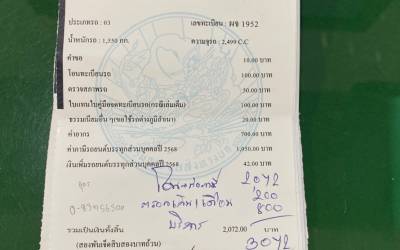 ประเภทรถ : 03 เลขทะเบียน : ผข 1952
น้ำหนักรถ : 1,550 กก. ความจุรถ : 2,499 C.C
ค่าขอ 10.00 บาท
โอนทะเบียนรถ 100.00 บาท
ตรวจสภาพรถ 50.00 บาท
ใบแทนใบคู่มือจดทะเบียนรถ(กรณีเล่มเต็ม) 100.00 บาท
ธรรมเนียมอื่น ๆ(ขอใช้รถต่างภูมิลำเนา) 20.00 บาท
ค่าอากร 700.00 บาท
ค่าภาษีรถยนต์บรรทุกส่วนบุคคลปี 2568 1,050.00 บาท
เงินเพิ่มรถยนต์บรรทุกส่วนบุคคลปี 2568 42.00 บาท
2072
200
บริการ 800
รวมเป็นเงินทั้งสิ้น 2,072.00 บาท
(สองพันเจ็ดสิบสองบาทถ้วน)
3072